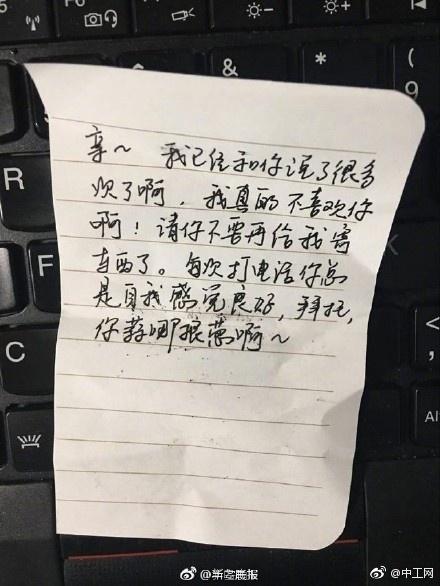 F6
F7
F8
&
亲～ 我已经和你说了很多
次了啊，我真的不喜欢你
啊！请你不要再给我寄
东西了。每次打电话你总
是自我感觉良好，拜托，
你算哪根葱啊～
R
F
C
@中工网